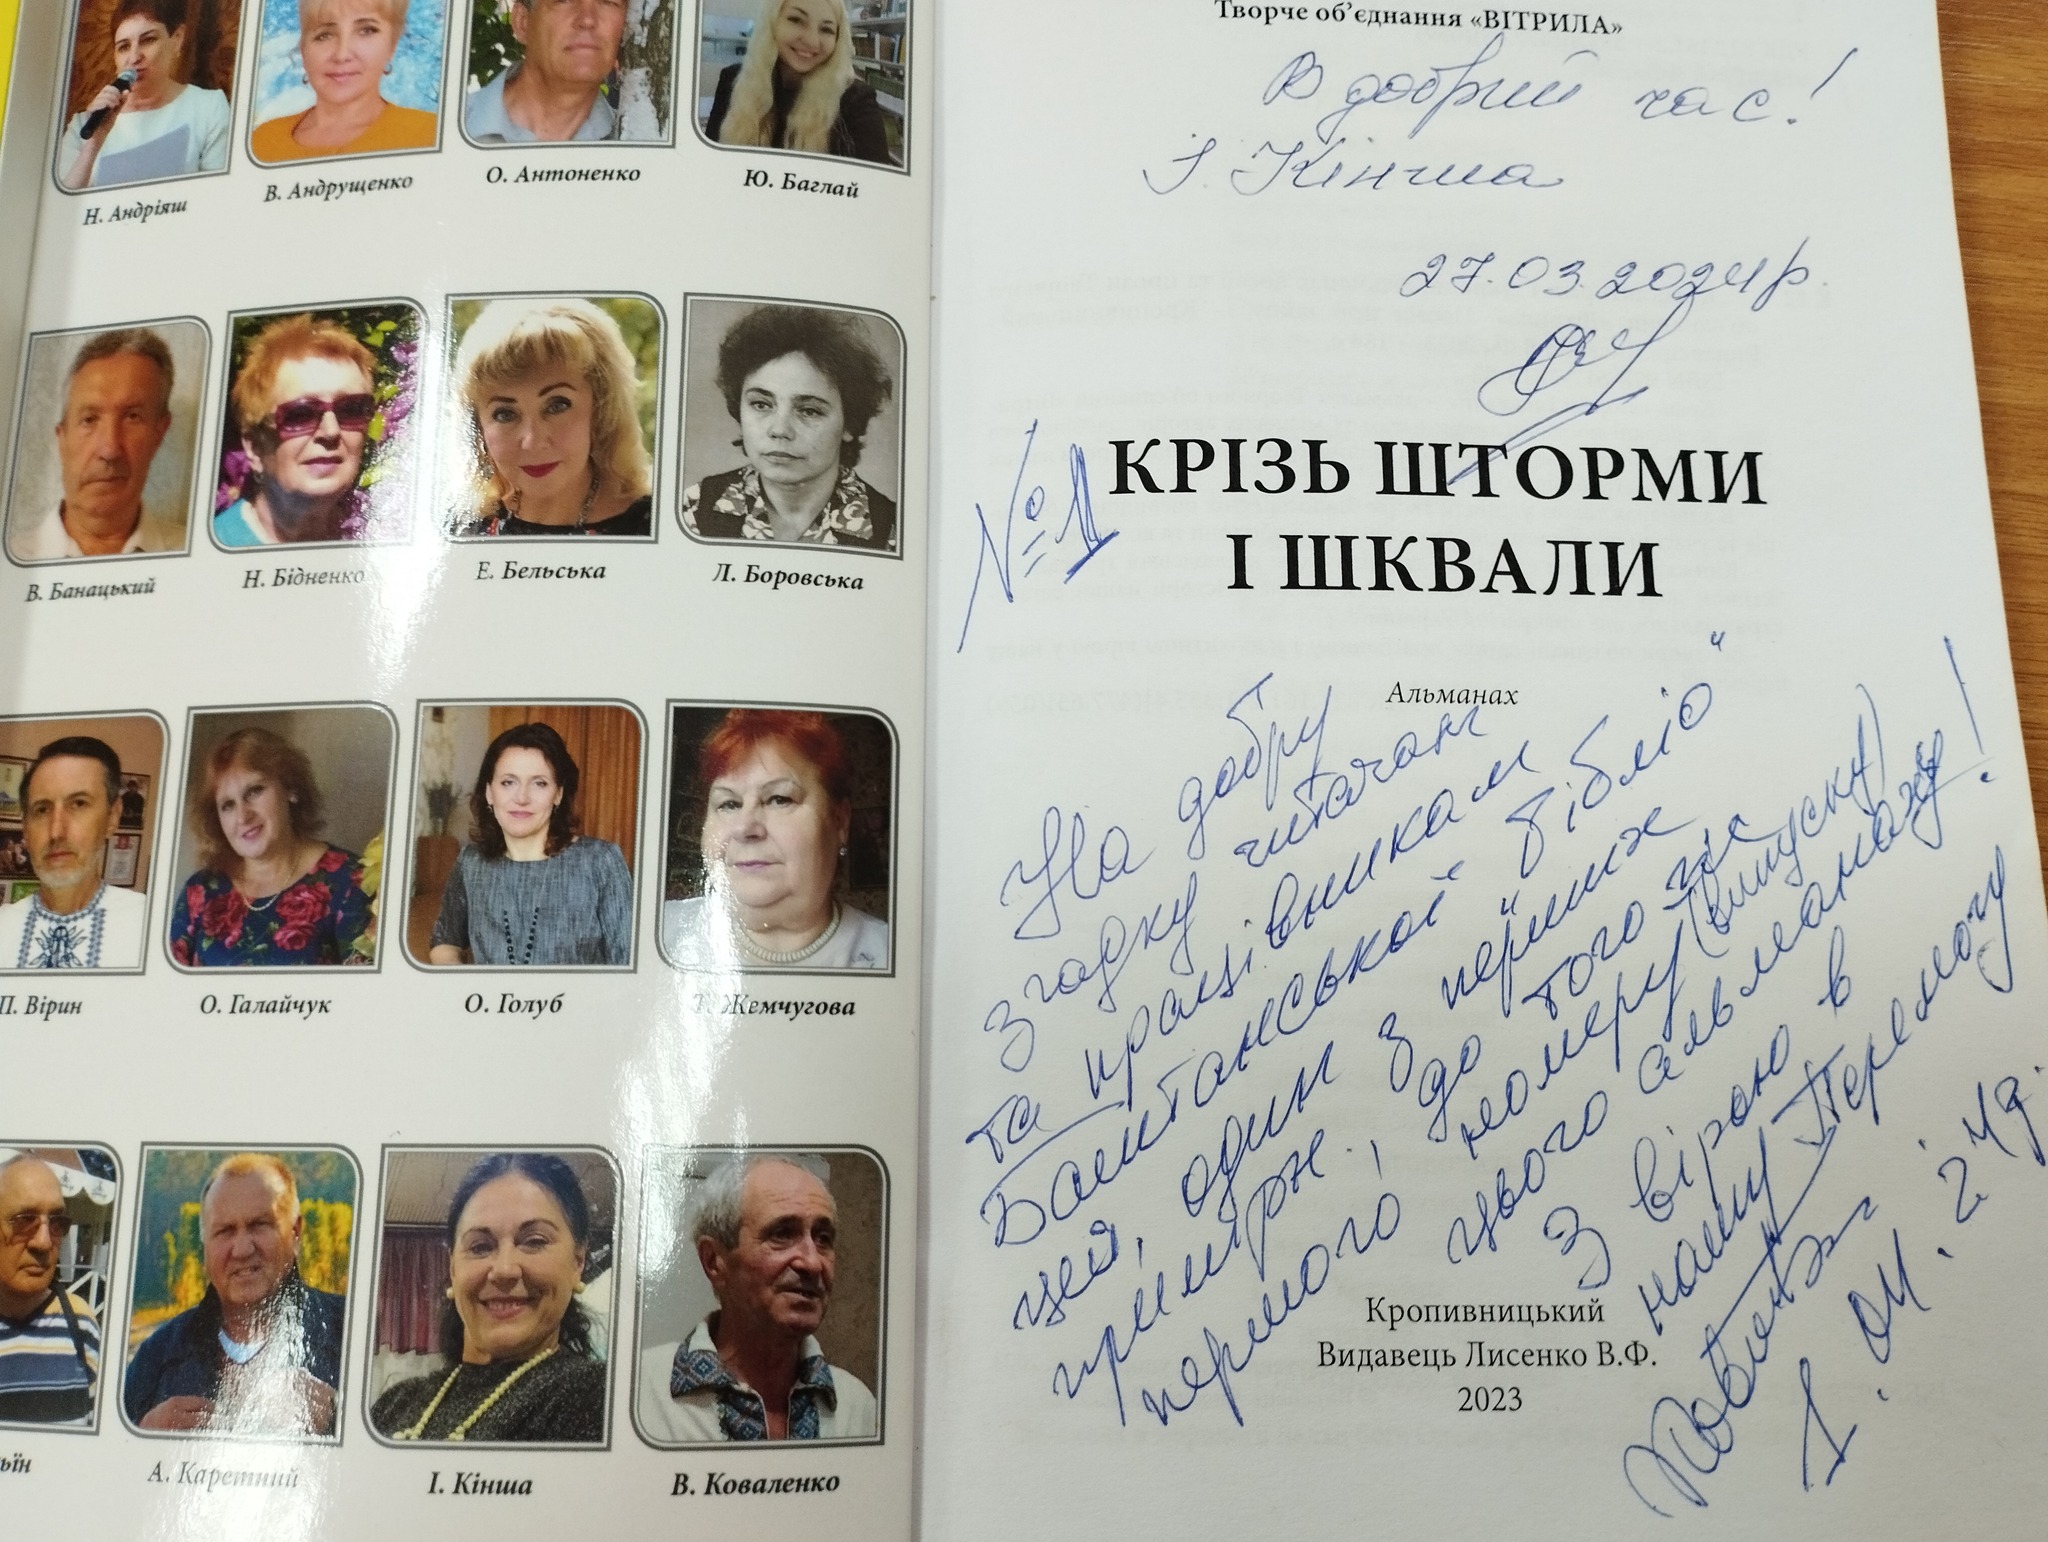 Н. Андріяш
В. Андрущенко
О. Антоненко
Ю. Баглай
В. Банацький
Н. Бідненко
Е. Бельська
Л. Боровська
П. Вірин
О. Галайчук
О. Голуб
Т. Жемчугова
ьїн
А. Каретний
І. Кінша
В. Коваленко
Творче об’єднання «ВІТРИЛА»
В добрий час!
І. Кінша
27.03.2024р.
№1
КРІЗЬ ШТОРМИ
І ШКВАЛИ
Альманах
На добру
згадку читачам
та працівникам
Баштанської "бібліо"
цей, один з перших
примірн., до того ж
першого номеру (випуску)
цього альманаху!
З вірою в
нашу Перемогу
1.04.24р.
Кропивницький
Видавець Лисенко В.Ф.
2023